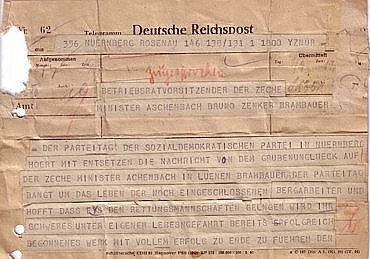 62
Telegramm Deutsche Reichspost
aus
356 NUERNBERG ROSENAU 146 138/131 1 1800 YZNUR =
Aufgenommen
Übermittelt
zugesprochen
BETRIEBSRATVORSITZENDER DER ZECHE
Amt
MINISTER ASCHENBACH BRUNO ZENKER BRAMBAUER
= DER PARTEITAG DER SOZIALDEMOKRATISCHEN PARTEI IN NUERNBERG
HOERT MIT ENTSETZEN DIE NACHRICHT VON DEM GRUBENUNGLUECK AUF
DER ZECHE MINISTER ACHENBACH IN LUENEN BRAMBAUER DER PARTEITAG
BANGT UM DAS LEBEN DER NOCH EINGESCHLOSSENEN BERGARBEITER UND
HOFFT DASS DEN RETTUNGSMANNSCHAFTEN GELINGEN WIRD IHR
SCHWERES UNTER EIGENER LEBENSGEFAHRT BEREITS ERFOLGREICH
BEGONNENES WERK MIT VOLLEM ERFOLG ZU ENDE ZU FUEHREN DEN